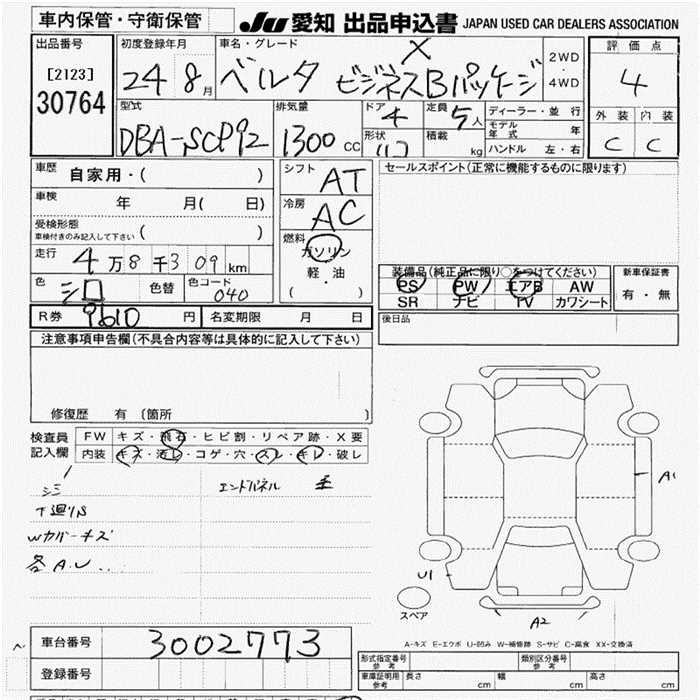 車内保管・守衛保管
JU 愛知 出品申込書 JAPAN USED CAR DEALERS ASSOCIATION
出品番号
[2123]
30764
初度登録年月
24 8月
車名・グレード
X
ベルタ ビジネスBパッケージ
2WD
4WD
評価点
4
外装 内装
C C
型式
DBA-SCP92
排気量
1300 CC
ドア
4
形状
定員
5人
積載
kg
ディーラー・並行
モデル年式 年
ハンドル 左・右
車歴
自家用・( )
車検
年 月( 日)
受検形態
車検付きのみ記入して下さい ( )
走行
4万8千309km
色
シロ
色替
色コード
040
シフト
AT
冷房
AC
燃料
ガソリン
軽・油
( )
セールスポイント(正常に機能するものに限ります)
装備品(純正品に限り○をつけてください)
PS PW エアB AW
SR ナビ TV カワシート
新車保証書
有・無
R券 9610 円 名変期限 月 日
後日品
注意事項申告欄(不具合内容等は具体的に記入して下さい)
修復歴 有 〔箇所 〕
検査員
記入欄
FW キズ・飛石・ヒビ割・リペア跡・X要
内装 キズ・汚レ・コゲ・穴・スレ・キレ・破レ
シミ
エンドパネル
下廻りS
Wカバーキズ
各A.U..
A1
U1
A2
スペア
A-キズ E-エクボ U-凹み W-補修跡 S-サビ C-腐食 XX-交換済
車台番号 3002773
登録番号
形式指定番号
参考
類別区分番号
参考
車庫証明用
参考
長さ cm 幅 cm 高さ cm